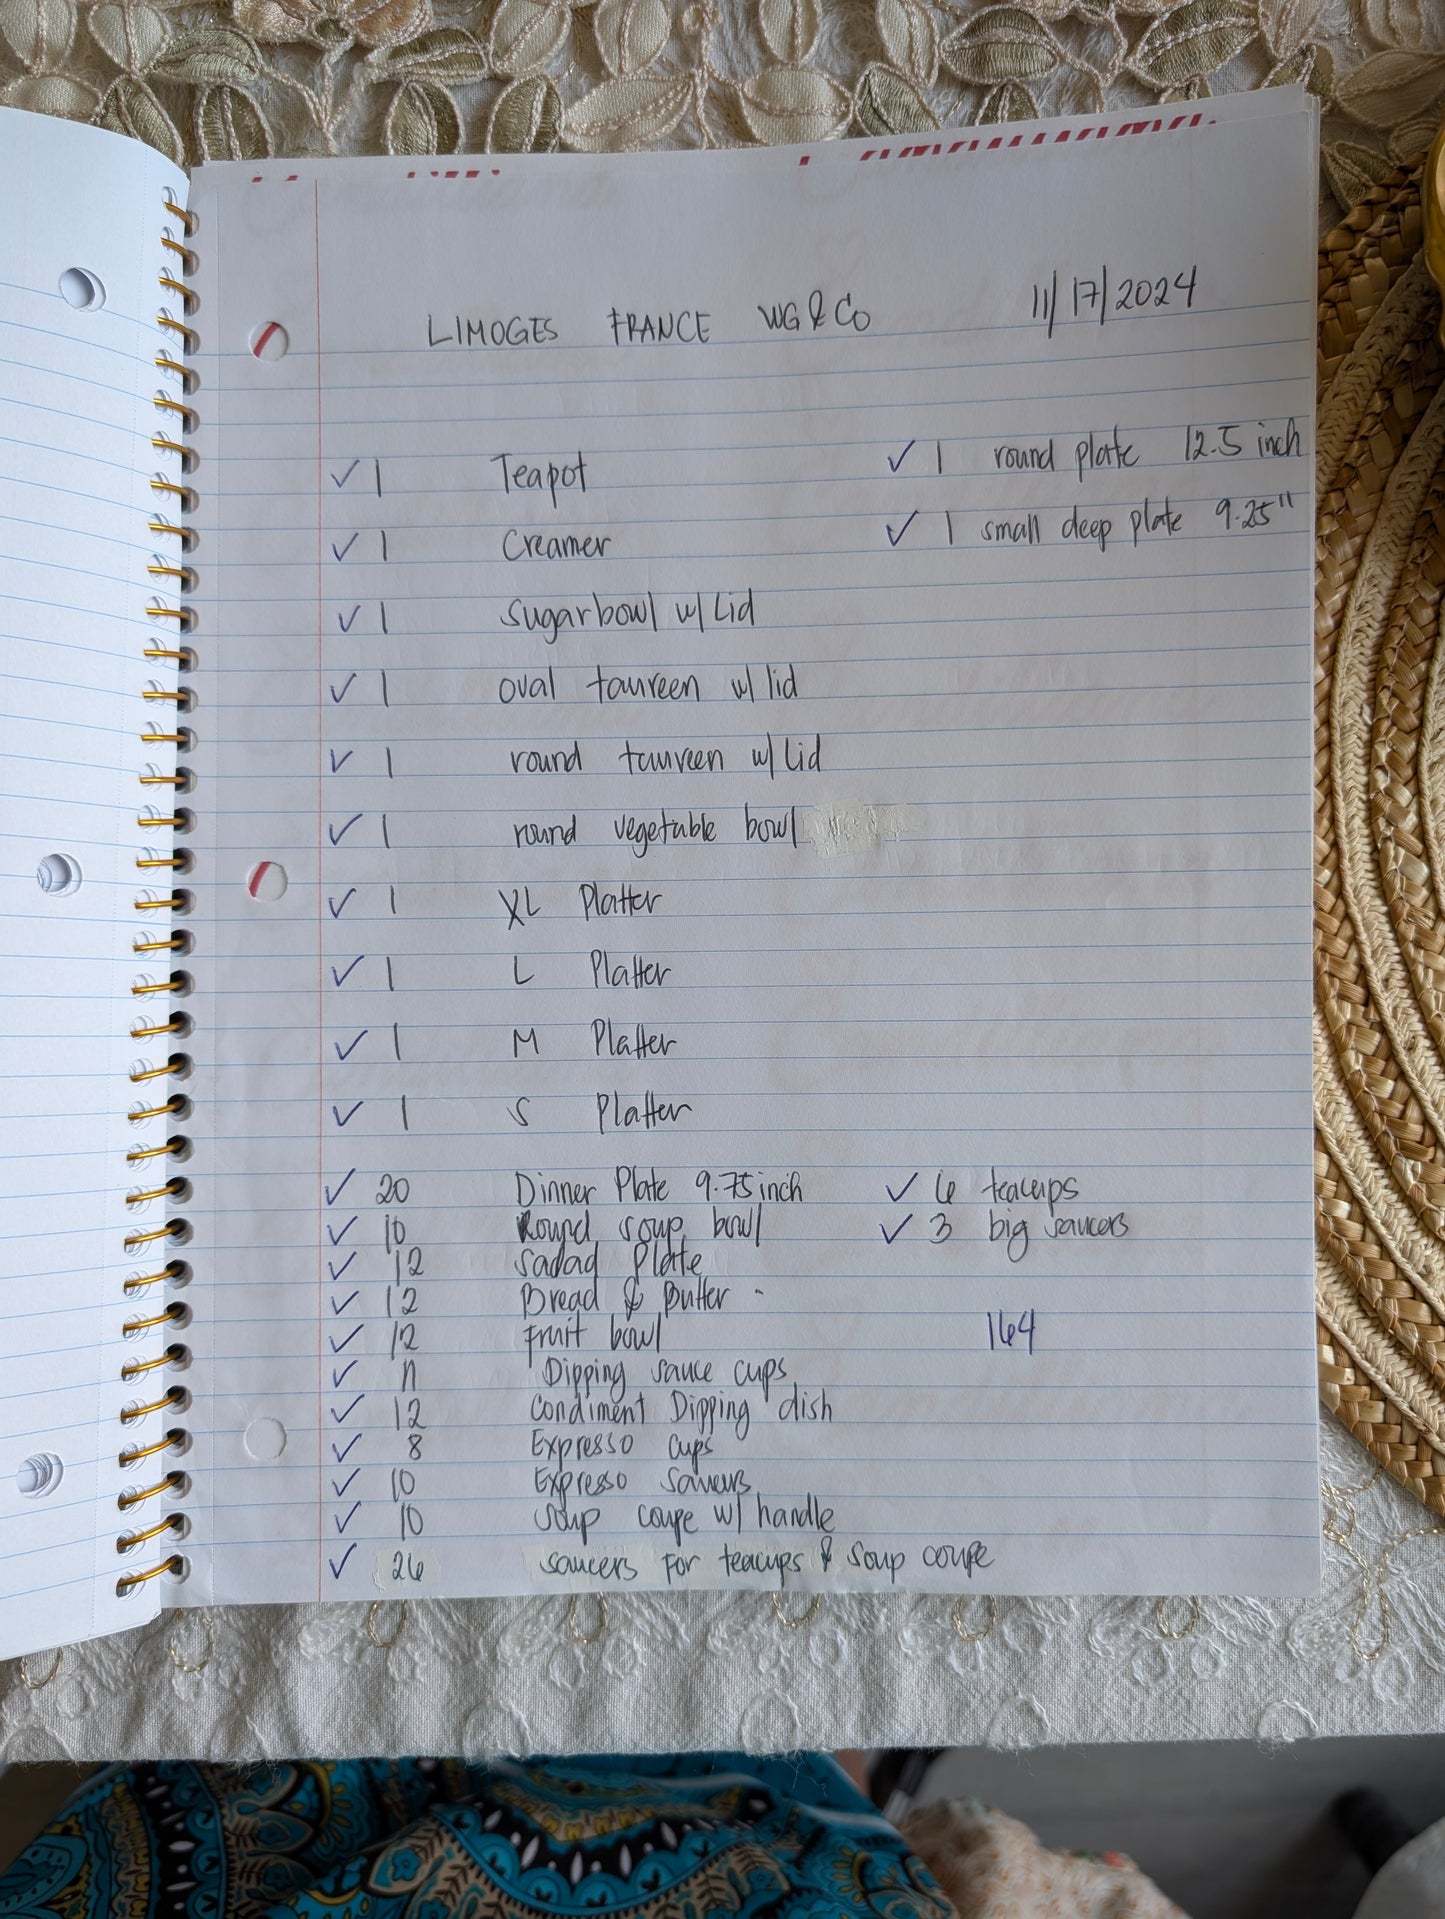 LIMOGES FRANCE WG & Co 11/17/2024
✓ 1 Teapot ✓ 1 round plate 12.5 inch
✓ 1 Creamer ✓ 1 small deep plate 9.25"
✓ 1 sugarbowl w/ Lid
✓ 1 oval taureen w/ lid
✓ 1 round taureen w/ Lid
✓ 1 round vegetable bowl
✓ 1 XL Platter
✓ 1 L Platter
✓ 1 M Platter
✓ 1 S Platter
✓ 20 Dinner Plate 9.75 inch ✓ 6 teacups
✓ 10 Round soup bowl ✓ 3 big saucers
✓ 12 Salad Plate
✓ 12 Bread & Butter -
✓ 12 Fruit bowl 164
✓ 11 Dipping sauce cups
✓ 12 Condiment Dipping dish
✓ 8 Expresso cups
✓ 10 Expresso saucers
✓ 10 soup coupe w/ handle
✓ 26 saucers for teacups & soup coupe